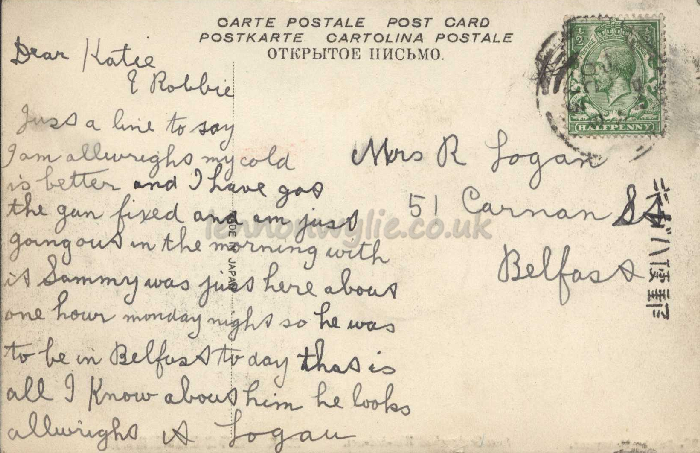 CARTE POSTALE POST CARD
POSTKARTE CARTOLINA POSTALE
ОТКРЫТОЕ ПИСЬМО.
Dear Katie
& Robbie
Just a line to say
I am allwright my cold
is better and I have got
the gun fixed and am just
going out in the morning with
it Sammy was just here about
one hour monday night so he was
to be in Belfast to day that is
all I Know about him he looks
allwright A Logan
Mrs R Logan
51 Carnan St
Belfast
HALFPENNY
MADE IN JAPAN
lennonwylie.co.uk